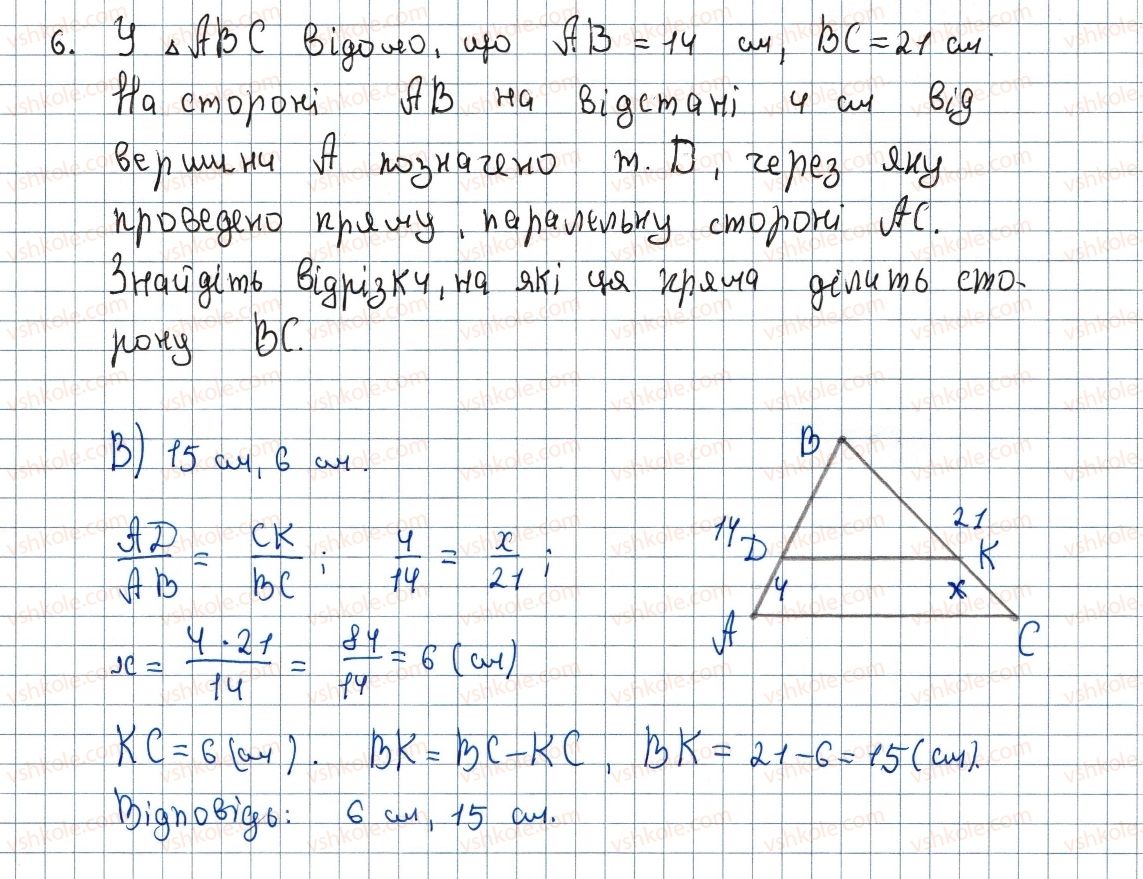 6. У △ABC відомо, що AB = 14 см, BC = 21 см.
На стороні AB на відстані 4 см від
вершини A позначено т. D, через яку
проведено пряму, паралельну стороні AC.
Знайдіть відрізки, на які ця пряма ділить сто-
рону BC.
В) 15 см, 6 см.
AD/AB = CK/BC; 4/14 = x/21;
x = 4·21/14 = 84/14 = 6 (см)
KC = 6 (см). BK = BC – KC, BK = 21 – 6 = 15 (см).
Відповідь: 6 см, 15 см.
B
14
21
D
K
4
x
A
C
vshkole.com